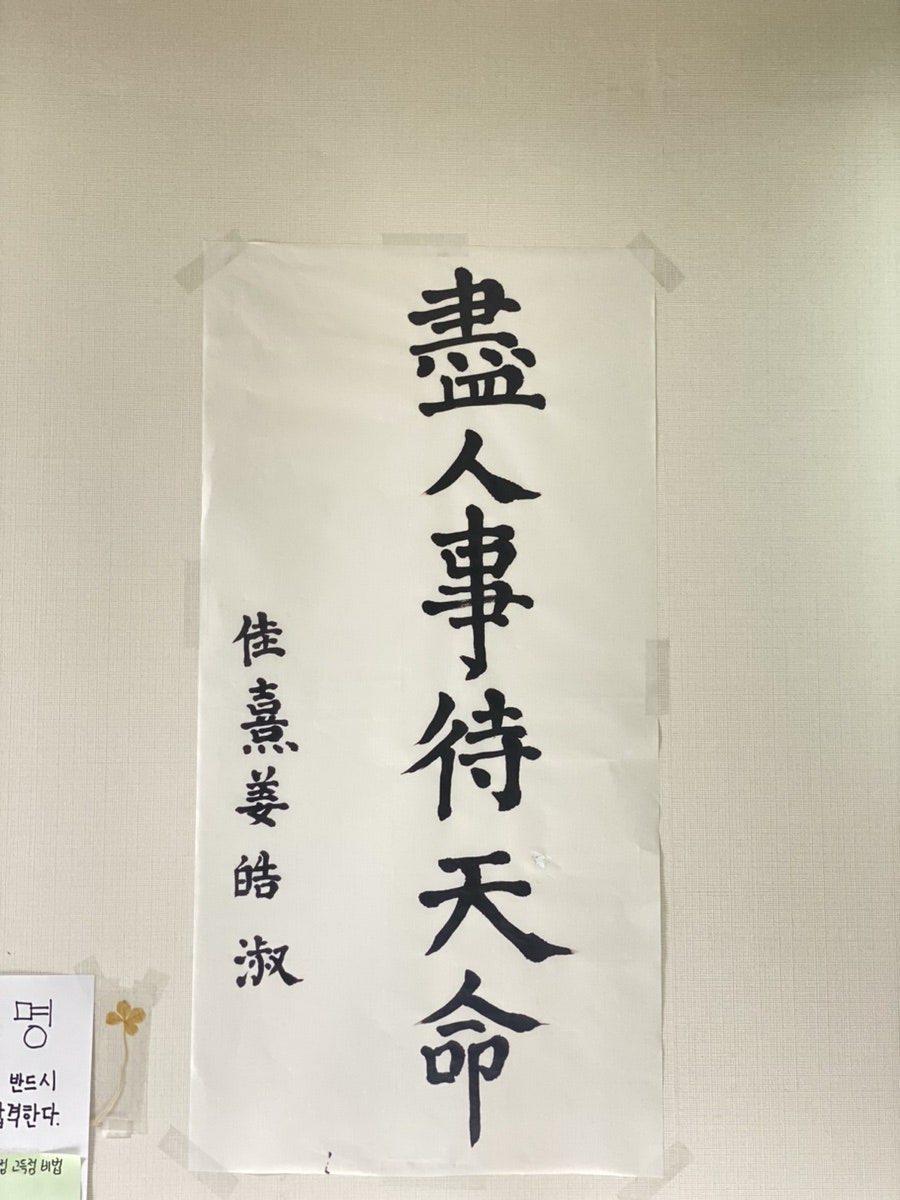 盡人事待天命
佳熹姜皓淑
명
반드시
합격한다.
고득점 비법